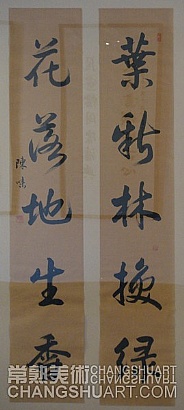 葉新林換綠
花落地生香
陳
常熟美術
CHANGSHUART.COM
常熟美術
CHANGSHUART.COM